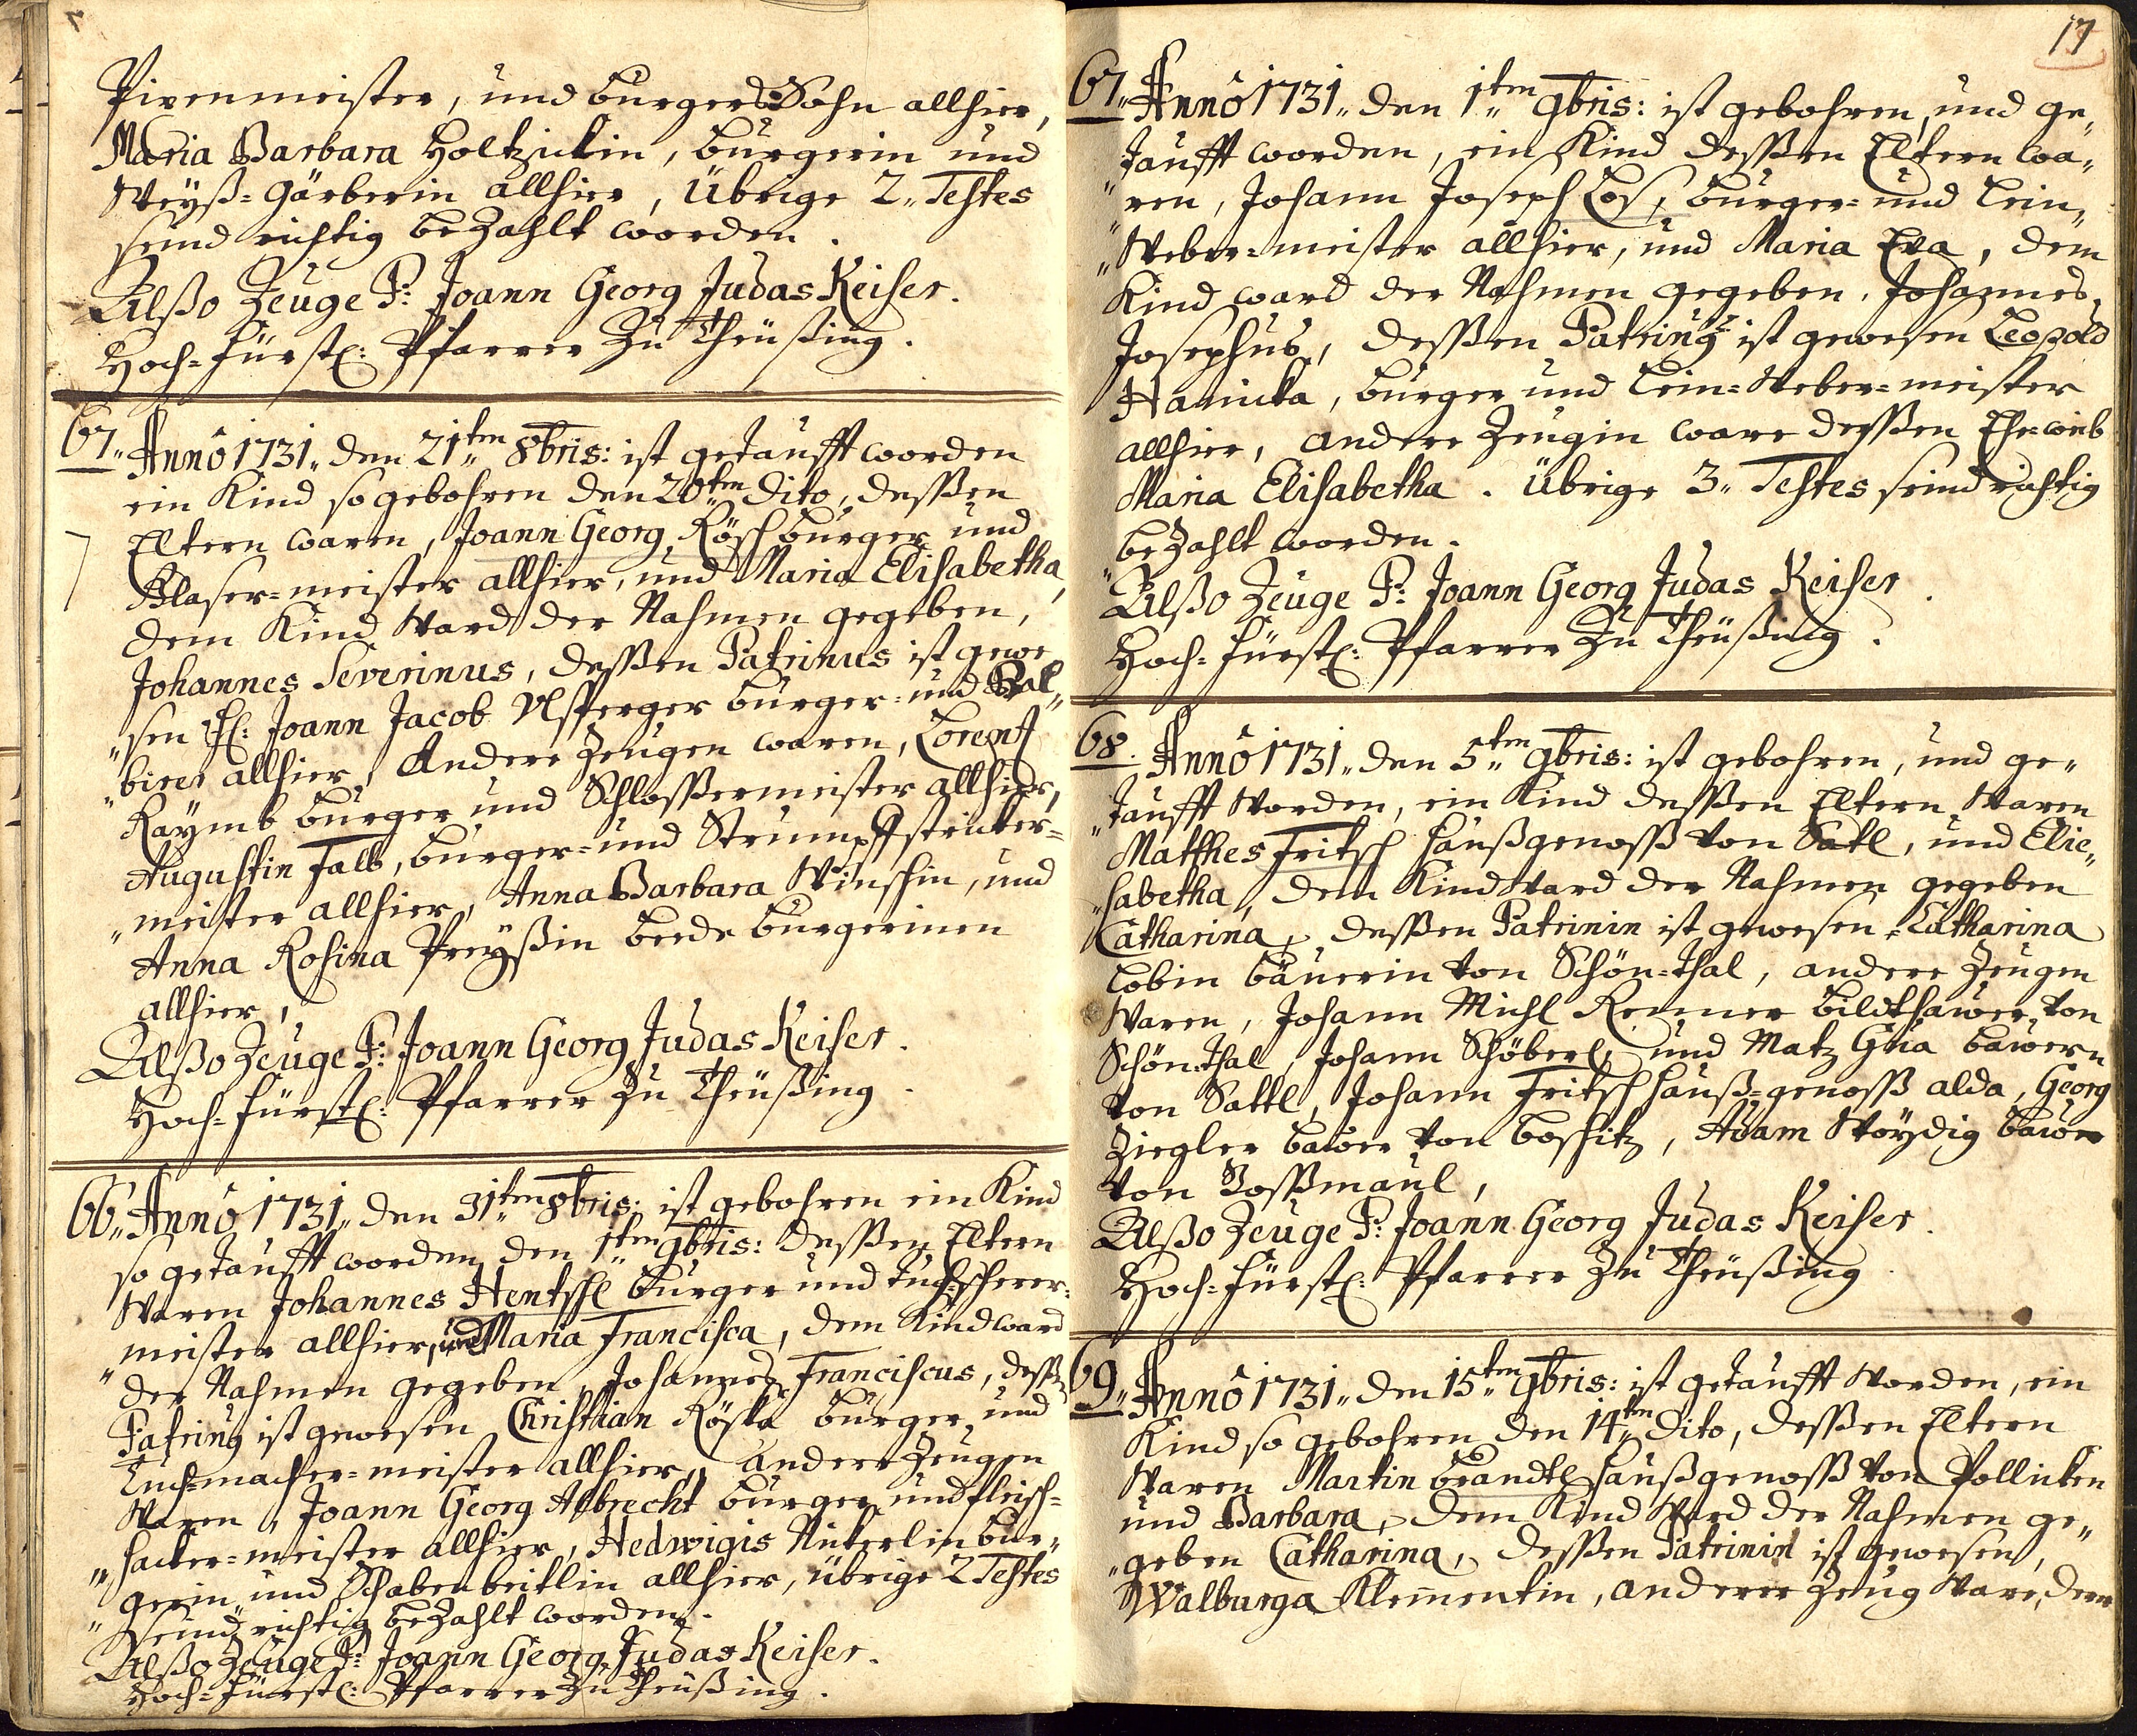 Pixenmeister, und burgers Sohn allhier,
Maria Barbara Holtzickin, burgerin und
Weyß-Gärberin allhier, Übrige 2„ Testes
seind richtig beZahlt worden.
Alßo Zeuge P: Joann Georg Judas Keiser.
Hoch-Fürstl: Pfarrer Zu Theüßing.
67„ Anno 1731„ den 21„tem 8bris: ist getaufft worden
ein Kind so gebohren den 20„tem dito, deßßen
Eltern waren, Joann Georg Rösch burger und
Glaser-meister allhier, und Maria Elisabetha,
dem Kind Ward der Nahmen gegeben,
Johannes Severinus, deßßen Patrinus ist gewe
„sen H: Joann Jacob Ulsperger burger- und Bal„
„birer allhier, Andere Zeugen waren, Lorentz
Raymb burger und Schlosßermeister allhier,
Augustin Falb, burger- und Strumpffstricker-
„meister allhier, Anna Barbara Winschin, und
Anna Rosina Preyßin beede burgerinen
allhier,
Alßo Zeuge P: Joann Georg Judas Keiser.
Hoch-Fürstl: Pfarrer Zu Theüßing.
66„ Anno 1731„ den 31„tem 8bris: ist gebohren ein Kind
so getaufft worden den 1„tem 9bris: deßßen Eltern
Waren Johannes Hentschl burger und Tuchscherer-
„meister allhier, und Maria Francisca, dem Kind ward
der Nahmen gegeben, Johannes Franciscus, deßßen
Patrinus ist gewesen Christian Röska burger und
Tuchmacher-meister allhier, andere Zeugen
Waren, Joann Georg Albrecht burger und fleisch-
„hacker-meister allhier, Hedwigis Nickerlin bur„
„gerin und Schabenbeitlin allhier, übrige 2 Testes
seind richtig beZahlt worden.
Alßo Zeuge P: Joann Georg Judas Keiser.
Hoch-Fürstl: Pfarrer Zu Theüßing.
17
67„ Anno 1731„ den 1„tem 9bris: ist gebohren, und ge„
„taufft worden, ein Kind deßßen Eltern wa„
„ren, Johann Joseph Los, burger- und Lein„
„Weber-meister allhier, und Maria Eva, dem
Kind ward der Nahmen gegeben, Johannes
Josephus, deßßen Patrinus ist gewesen Leopold
Hanicka, burger und Lein-Weber-meister
allhier, andere Zeugin ware deßßen Eheweib
Maria Elisabetha. Übrige 3„ Testes seind richtig
beZahlt worden.
Alßo Zeuge P: Joann Georg Judas Keiser.
Hoch-Fürstl: Pfarrer Zu Theüßing.
68. Anno 1731„ den 5„tem 9bris: ist gebohren, und ge„
„taufft Worden, ein Kind deßßen Eltern Waren
Matthes Fritsch haußgenosß von Satl, und Elie„
„sabetha, dem Kind Ward der Nahmen gegeben
Catharina, deßßen Patrinin ist gewesen Catharina
Lobin bäuerin von Schön-thal, andere Zeugen
Waren, Johann Michl Renner bildthauer von
Schön-thal, Johann Schöberl, und Matz Gria bauern
von Sattl, Johann Fritsch hauß-genosß alda, Georg
Ziegler bauer von boschitz, Adam Wöydig bauer
von Zosßmaul,
Alßo Zeuge P: Joann Georg Judas Keiser.
Hoch-Fürstl: Pfarrer Zu Theüßing
69„ Anno 1731„ den 15„tem 9bris: ist getaufft Worden, ein
Kind so gebohren den 14„tem dito, deßßen Eltern
Waren Martin brandtl haußgenosß von Pollicken
und Barbara, dem Kind Ward der Nahmen ge„
„geben Catharina, deßßen Patrinin ist gewesen,
Walburga Klementin, anderer Zeug Ware, dem